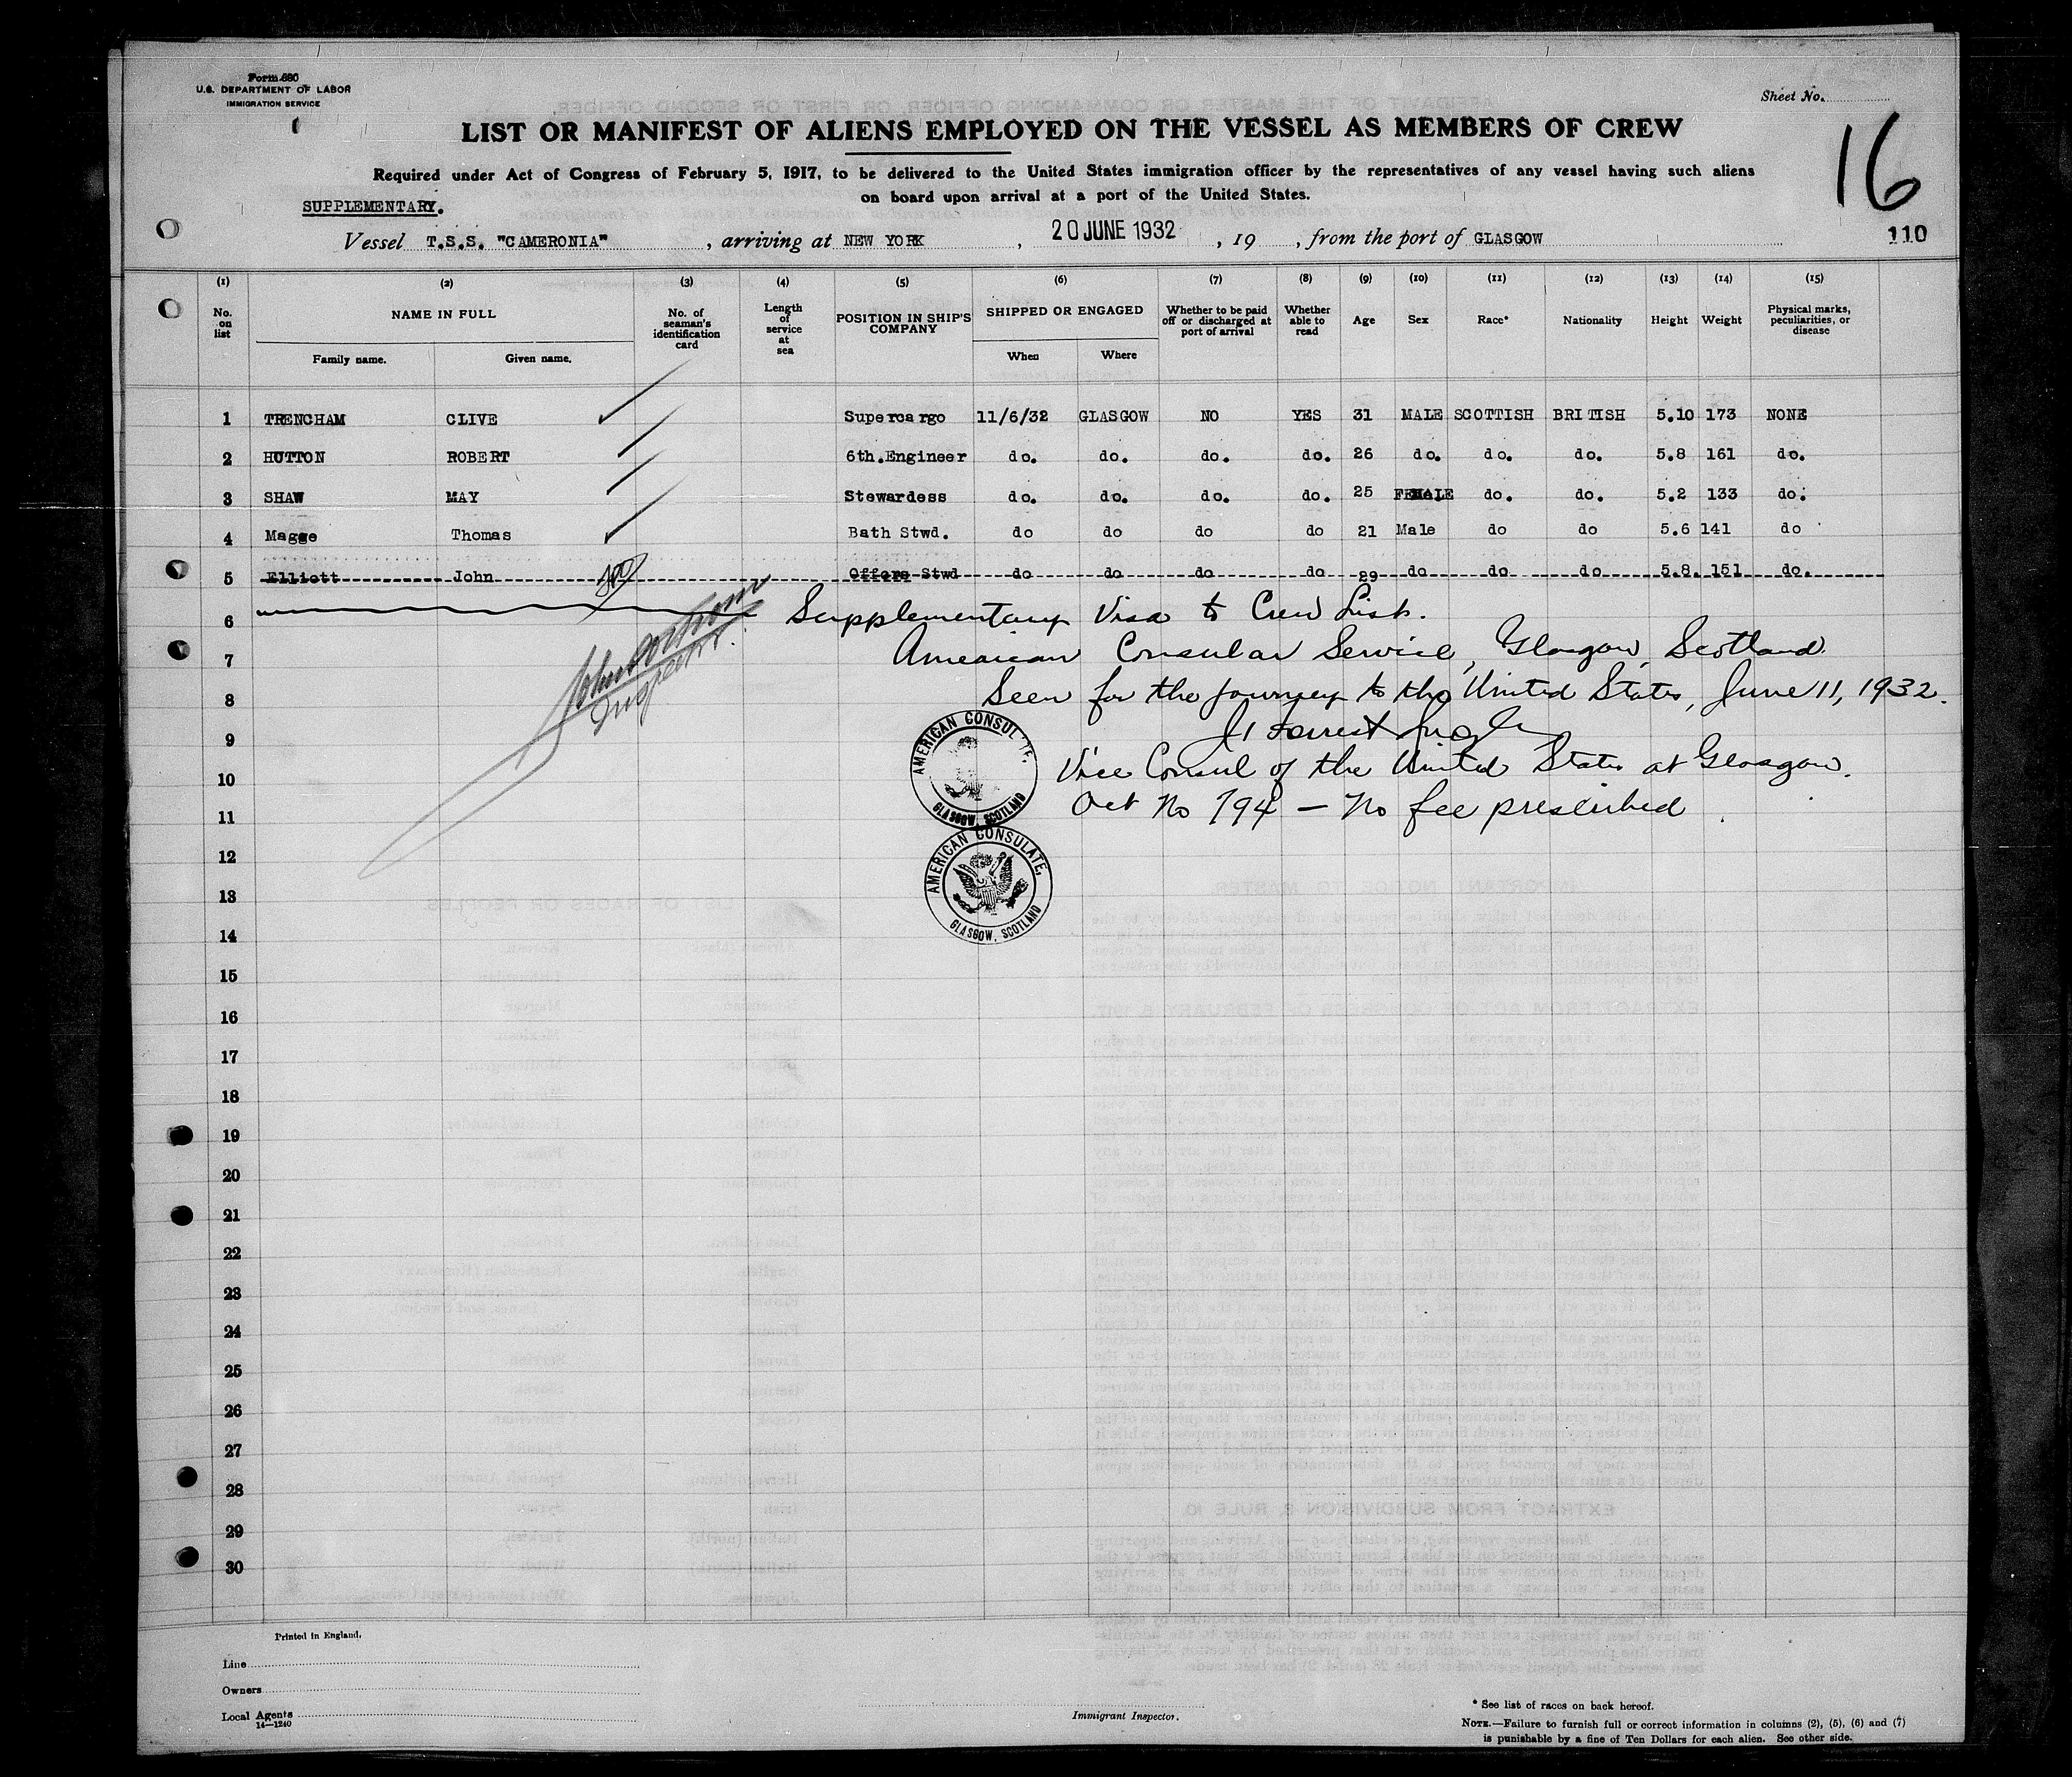 Form 680
U.S. DEPARTMENT OF LABOR
IMMIGRATION SERVICE
Sheet No.
LIST OR MANIFEST OF ALIENS EMPLOYED ON THE VESSEL AS MEMBERS OF CREW
16
Required under Act of Congress of February 5, 1917, to be delivered to the United States immigration officer by the representatives of any vessel having such aliens
on board upon arrival at a port of the United States.
SUPPLEMENTARY.
Vessel T.S.S. "CAMERONIA", arriving at NEW YORK, 20 JUNE 1932, 19 , from the port of GLASGOW
110
(1) (2) (3) (4) (5) (6) (7) (8) (9) (10) (11) (12) (13) (14) (15)
No. on list NAME IN FULL No. of seaman's identification card Length of service at sea POSITION IN SHIP'S COMPANY SHIPPED OR ENGAGED Whether to be paid off or discharged at port of arrival Whether able to read Age Sex Race* Nationality Height Weight Physical marks, peculiarities, or disease
Family name. Given name. When Where
1 TRENCHAM CLIVE Supercargo 11/6/32 GLASGOW NO YES 31 MALE SCOTTISH BRITISH 5.10 173 NONE
2 HUTTON ROBERT 6th.Engineer do. do. do. do. 26 do. do. do. 5.8 161 do.
3 SHAW MAY Stewardess do. do. do. do. 25 FEMALE do. do. 5.2 133 do.
4 Magge Thomas Bath Stwd. do do do do 21 Male do do 5.6 141 do
5 Elliott John Offcrs Stwd do do do do 29 do do do 5.8. 151 do.
6 Supplementary Visa to Crew List.
7 American Consular Service, Glasgow, Scotland
8 Seen for the journey to the United States, June 11, 1932.
Inspector.
9
10 Vice Consul of the United States at Glasgow.
11 No 794 — No fee prescribed
AMERICAN CONSULATE,
GLASGOW, SCOTLAND
AMERICAN CONSULATE,
GLASGOW, SCOTLAND
12
13
14
15
16
17
18
19
20
21
22
23
24
25
26
27
28
29
30
Printed in England.
Line
Owners
Local Agents
14—1240
Immigrant Inspector.
* See list of races on back hereof.
NOTE.—Failure to furnish full or correct information in columns (2), (5), (6) and (7)
is punishable by a fine of Ten Dollars for each alien. See other side.